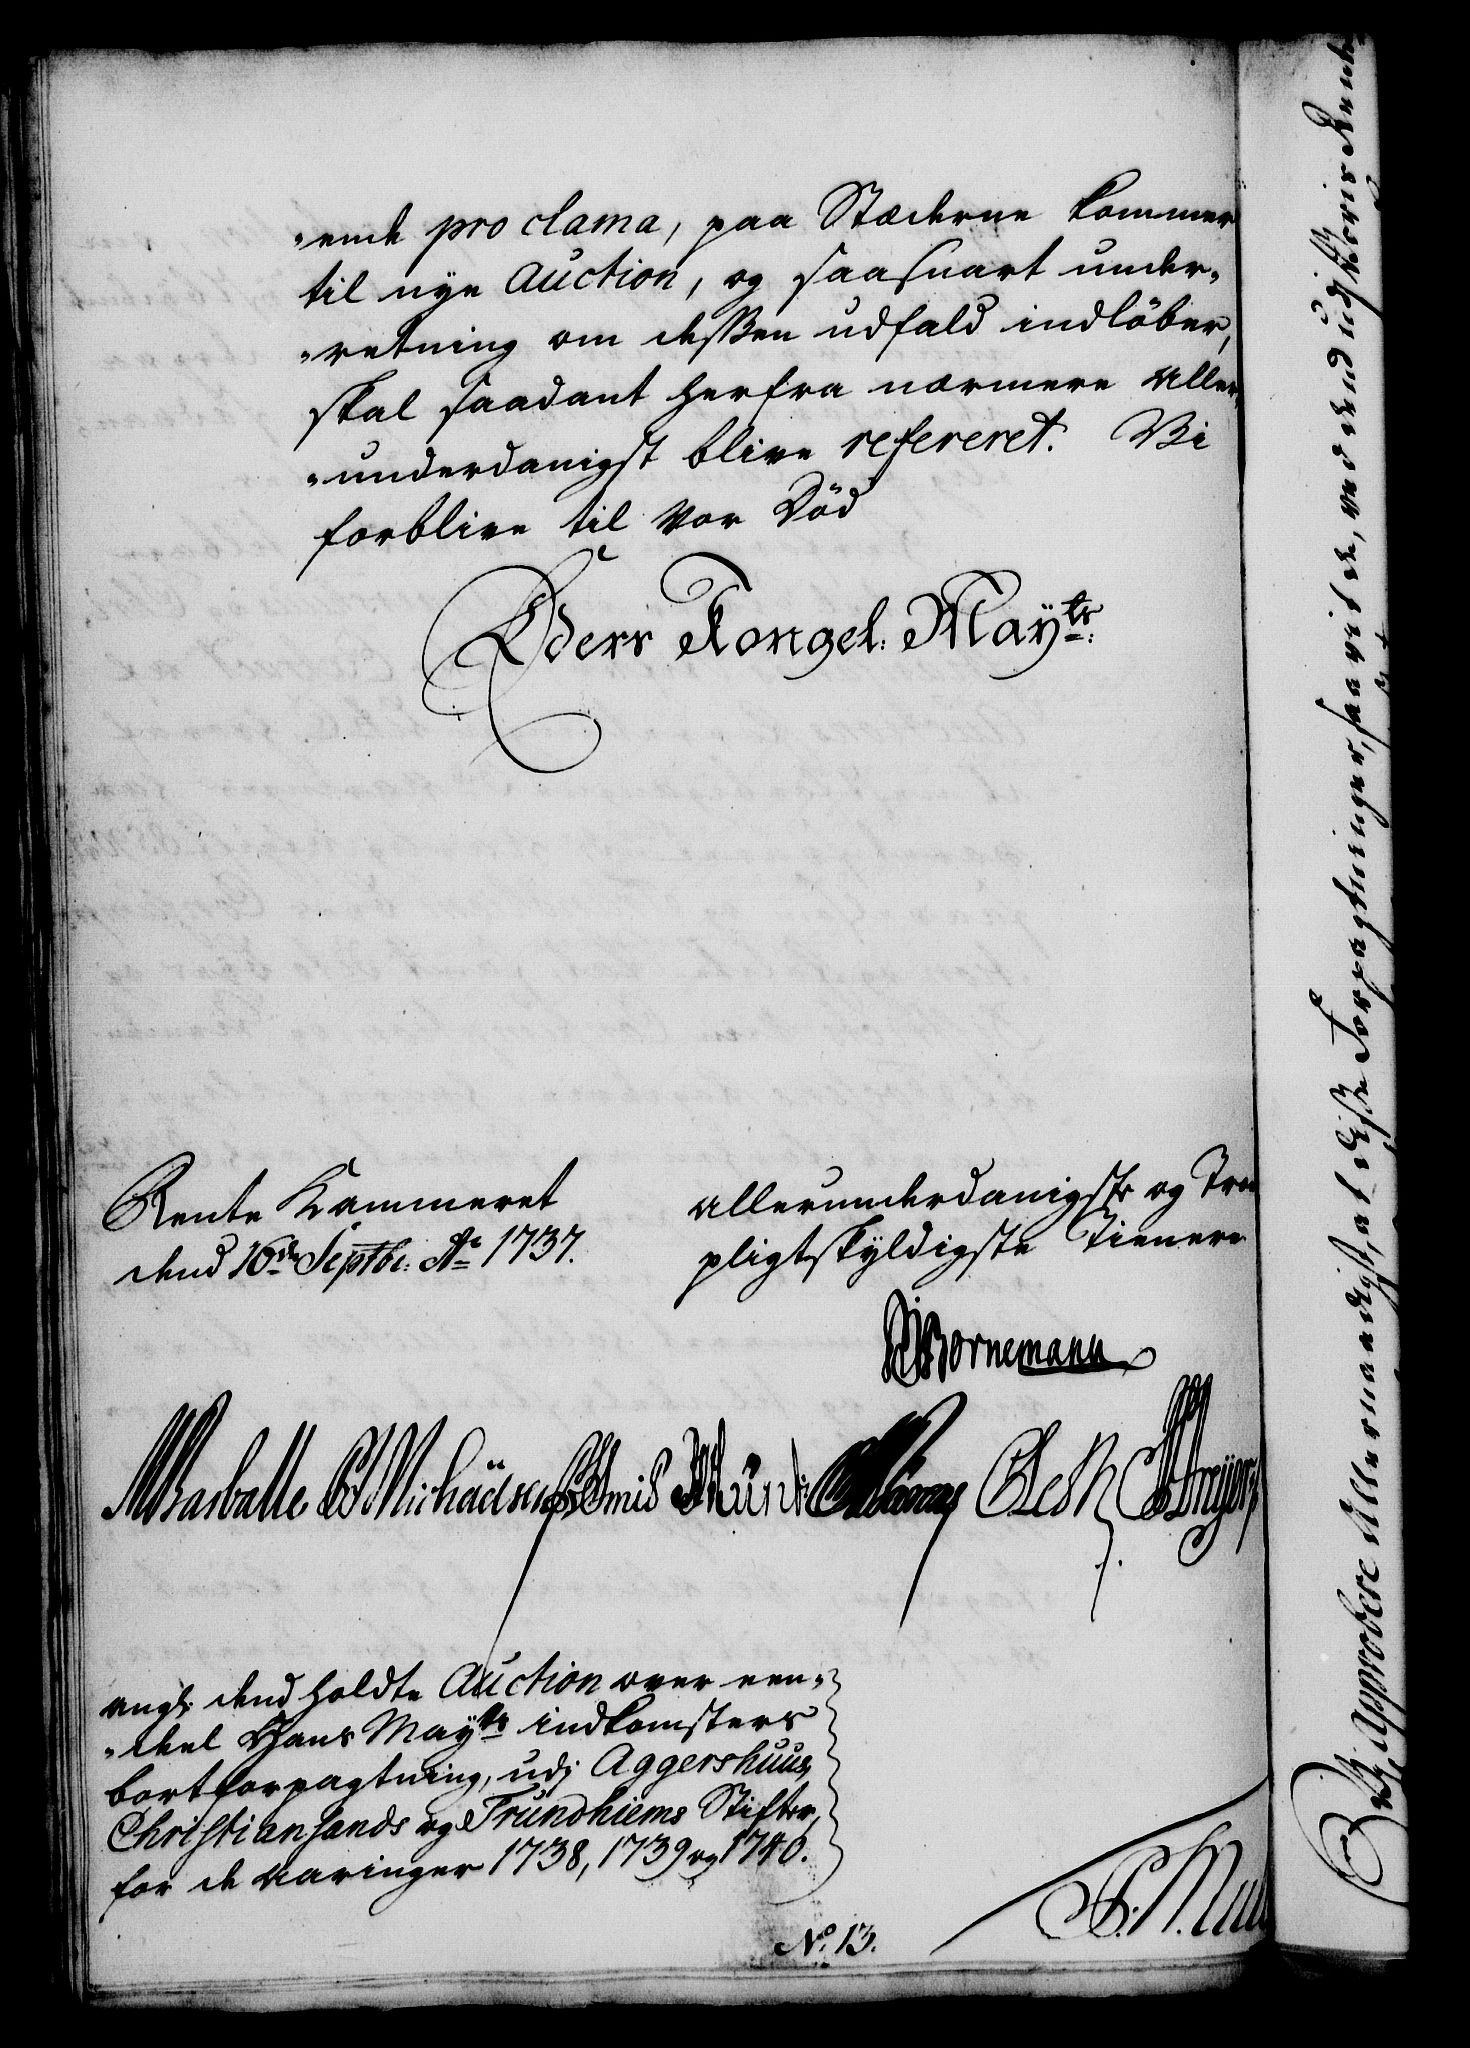 -ende pro clama, paa Stæderne kommer
til nye Auction, og saasnart under-
-retning om deßen udfald indlöber,
skal saadant herfra nærmere aller-
-underdanigst blive refereret. Vi
forblive til vor Död
Eders Kongel: Mayts:
Rente Kammeret
dend 16de Septbr: Ao 1737.
allerunderdanigste og Troe
pligtskyldigste Tienere
Bornemann
Barballe Michäelsen Smid Münk OLesk Dreyer
angl: dend holdte Auction over een-
-deel Hans Mayts indkomsters
bortforpagtning, udj Aggershuus,
Christiansands og Trundhiems Stifter,
for de aaringer 1738, 1739 og 1740.
No. 13.
Vi Approbere Allernaadigst, at diße Forpagtninger, saavit de, ved dend udj Voris Rente